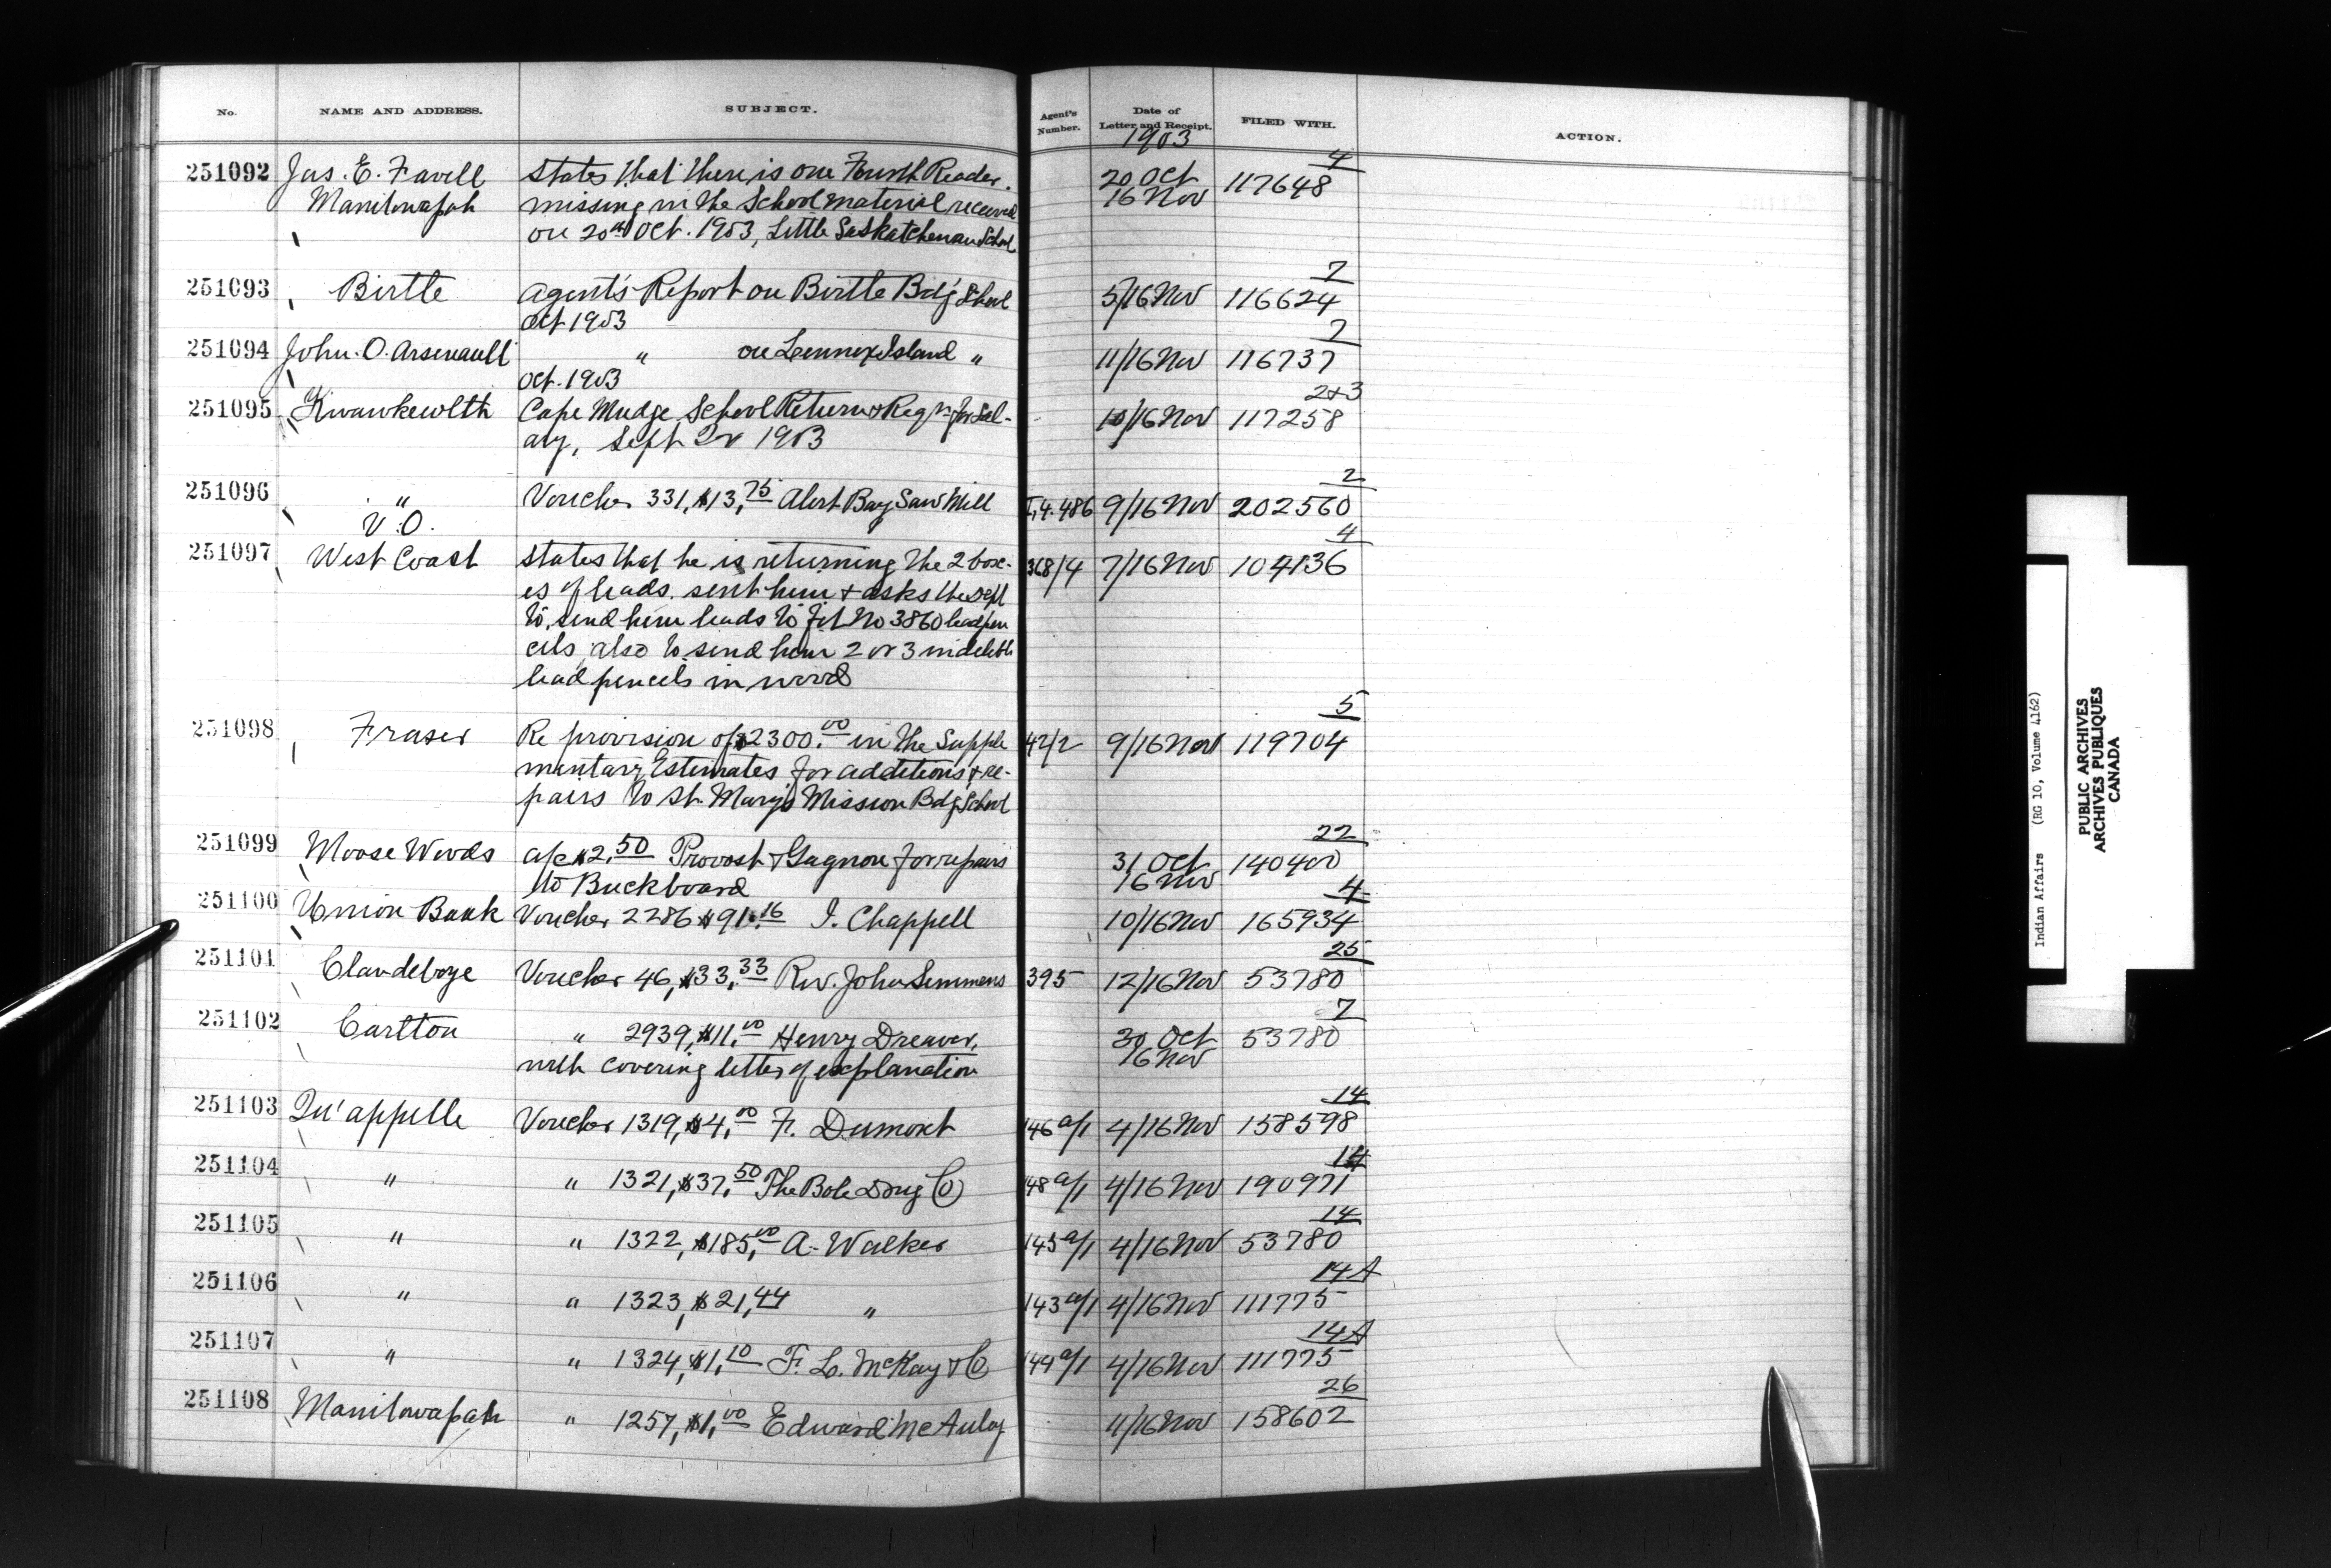 No. NAME AND ADDRESS. SUBJECT. Agent's Number. Date of Letter and Receipt. FILED WITH. ACTION.
1903
4
251092 Jas. E. Favell States that there is one Fourth Reader 20 Oct 117648
Manitowapah missing in the School material received 16 Nov
on 20th Oct. 1903, Little Saskatchewan School
7
251093 Birtle Agent's Report on Birtle Bdg School 5/16 Nov 116624
Oct 1903
7
251094 John. O. Arsenault " on Lennox Island " 11/16 Nov 116737
Oct. 1903
2+3
251095 Kwawkewlth Cape Mudge School Return & Reqn for Sal- 10/16 Nov 117258
ary, Sept Qr 1903
2
251096 " Voucher 331, $13,75 Alert Bay Saw Mill 4.486 9/16 Nov 202560
V.O.
4
251097 West Coast States that he is returning the 2 box- 368/4 7/16 Nov 104136
es of leads. sent him & asks the Dept
to send him leads to fit No 3860 lead pen
cils, also to send him 2 or 3 indelible
lead pencils in wood
5
251098 Fraser Re provision of $2300.00 in the Supple 42/2 9/16 Nov 119704
mentary Estimates for additions & re-
pairs to St. Mary's Mission Bdg School
22
251099 Moose Woods a/c $2,50 Provost & Gagnon for repairs 31 Oct 140400
to Buckboard 16 Nov
4
251100 Union Bank Voucher 2286 $91.16 I. Chappell 10/16 Nov 165934
25
251101 Clandeboye Voucher 46, $33,33 Rev. John Semmens 395 12/16 Nov 53780
7
251102 Carlton " 2939, $11,00 Henry Dreaver, 30 Oct 53780
with covering letter of explanation 16 Nov
14
251103 Qu'appelle Voucher 1319, $4,00 F. Dumont 146 a/1 4/16 Nov 158598
14
251104 " " 1321, $37,50 The Bole Drug Co 148 a/1 4/16 Nov 190971
14
251105 " " 1322, $185,00 A. Walker 145 a/1 4/16 Nov 53780
14A
251106 " " 1323, $21,44 " 143 a/1 4/16 Nov 111775
14A
251107 " " 1324, $1,10 F. L. McKay & Co 144 a/1 4/16 Nov 111775
26
251108 Manitowapah " 1257, $1,00 Edward McAulay 4/16 Nov 158602
Indian Affairs (RG 10, Volume 4162)
PUBLIC ARCHIVES
ARCHIVES PUBLIQUES
CANADA